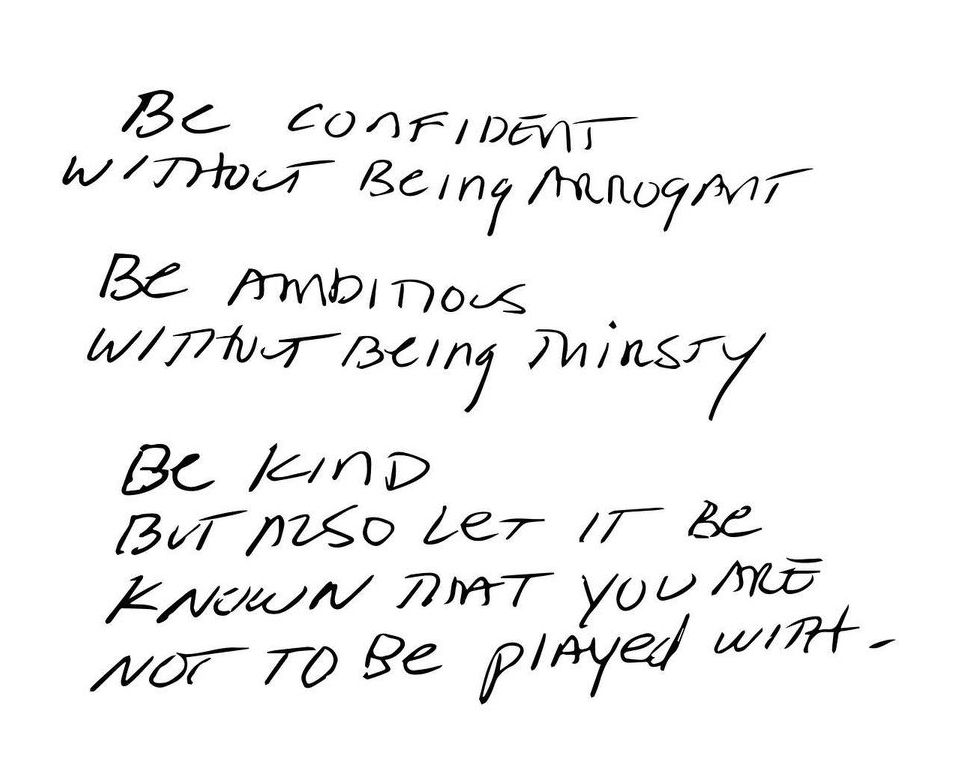 Be CONFIDENT
WITHOUT Being ARROGANT
Be AMBITIOUS
WITHOUT Being THIRSTY
Be KIND
BUT ALSO LET IT Be
KNOWN THAT YOU ARE
NOT TO Be plAyed WITH.